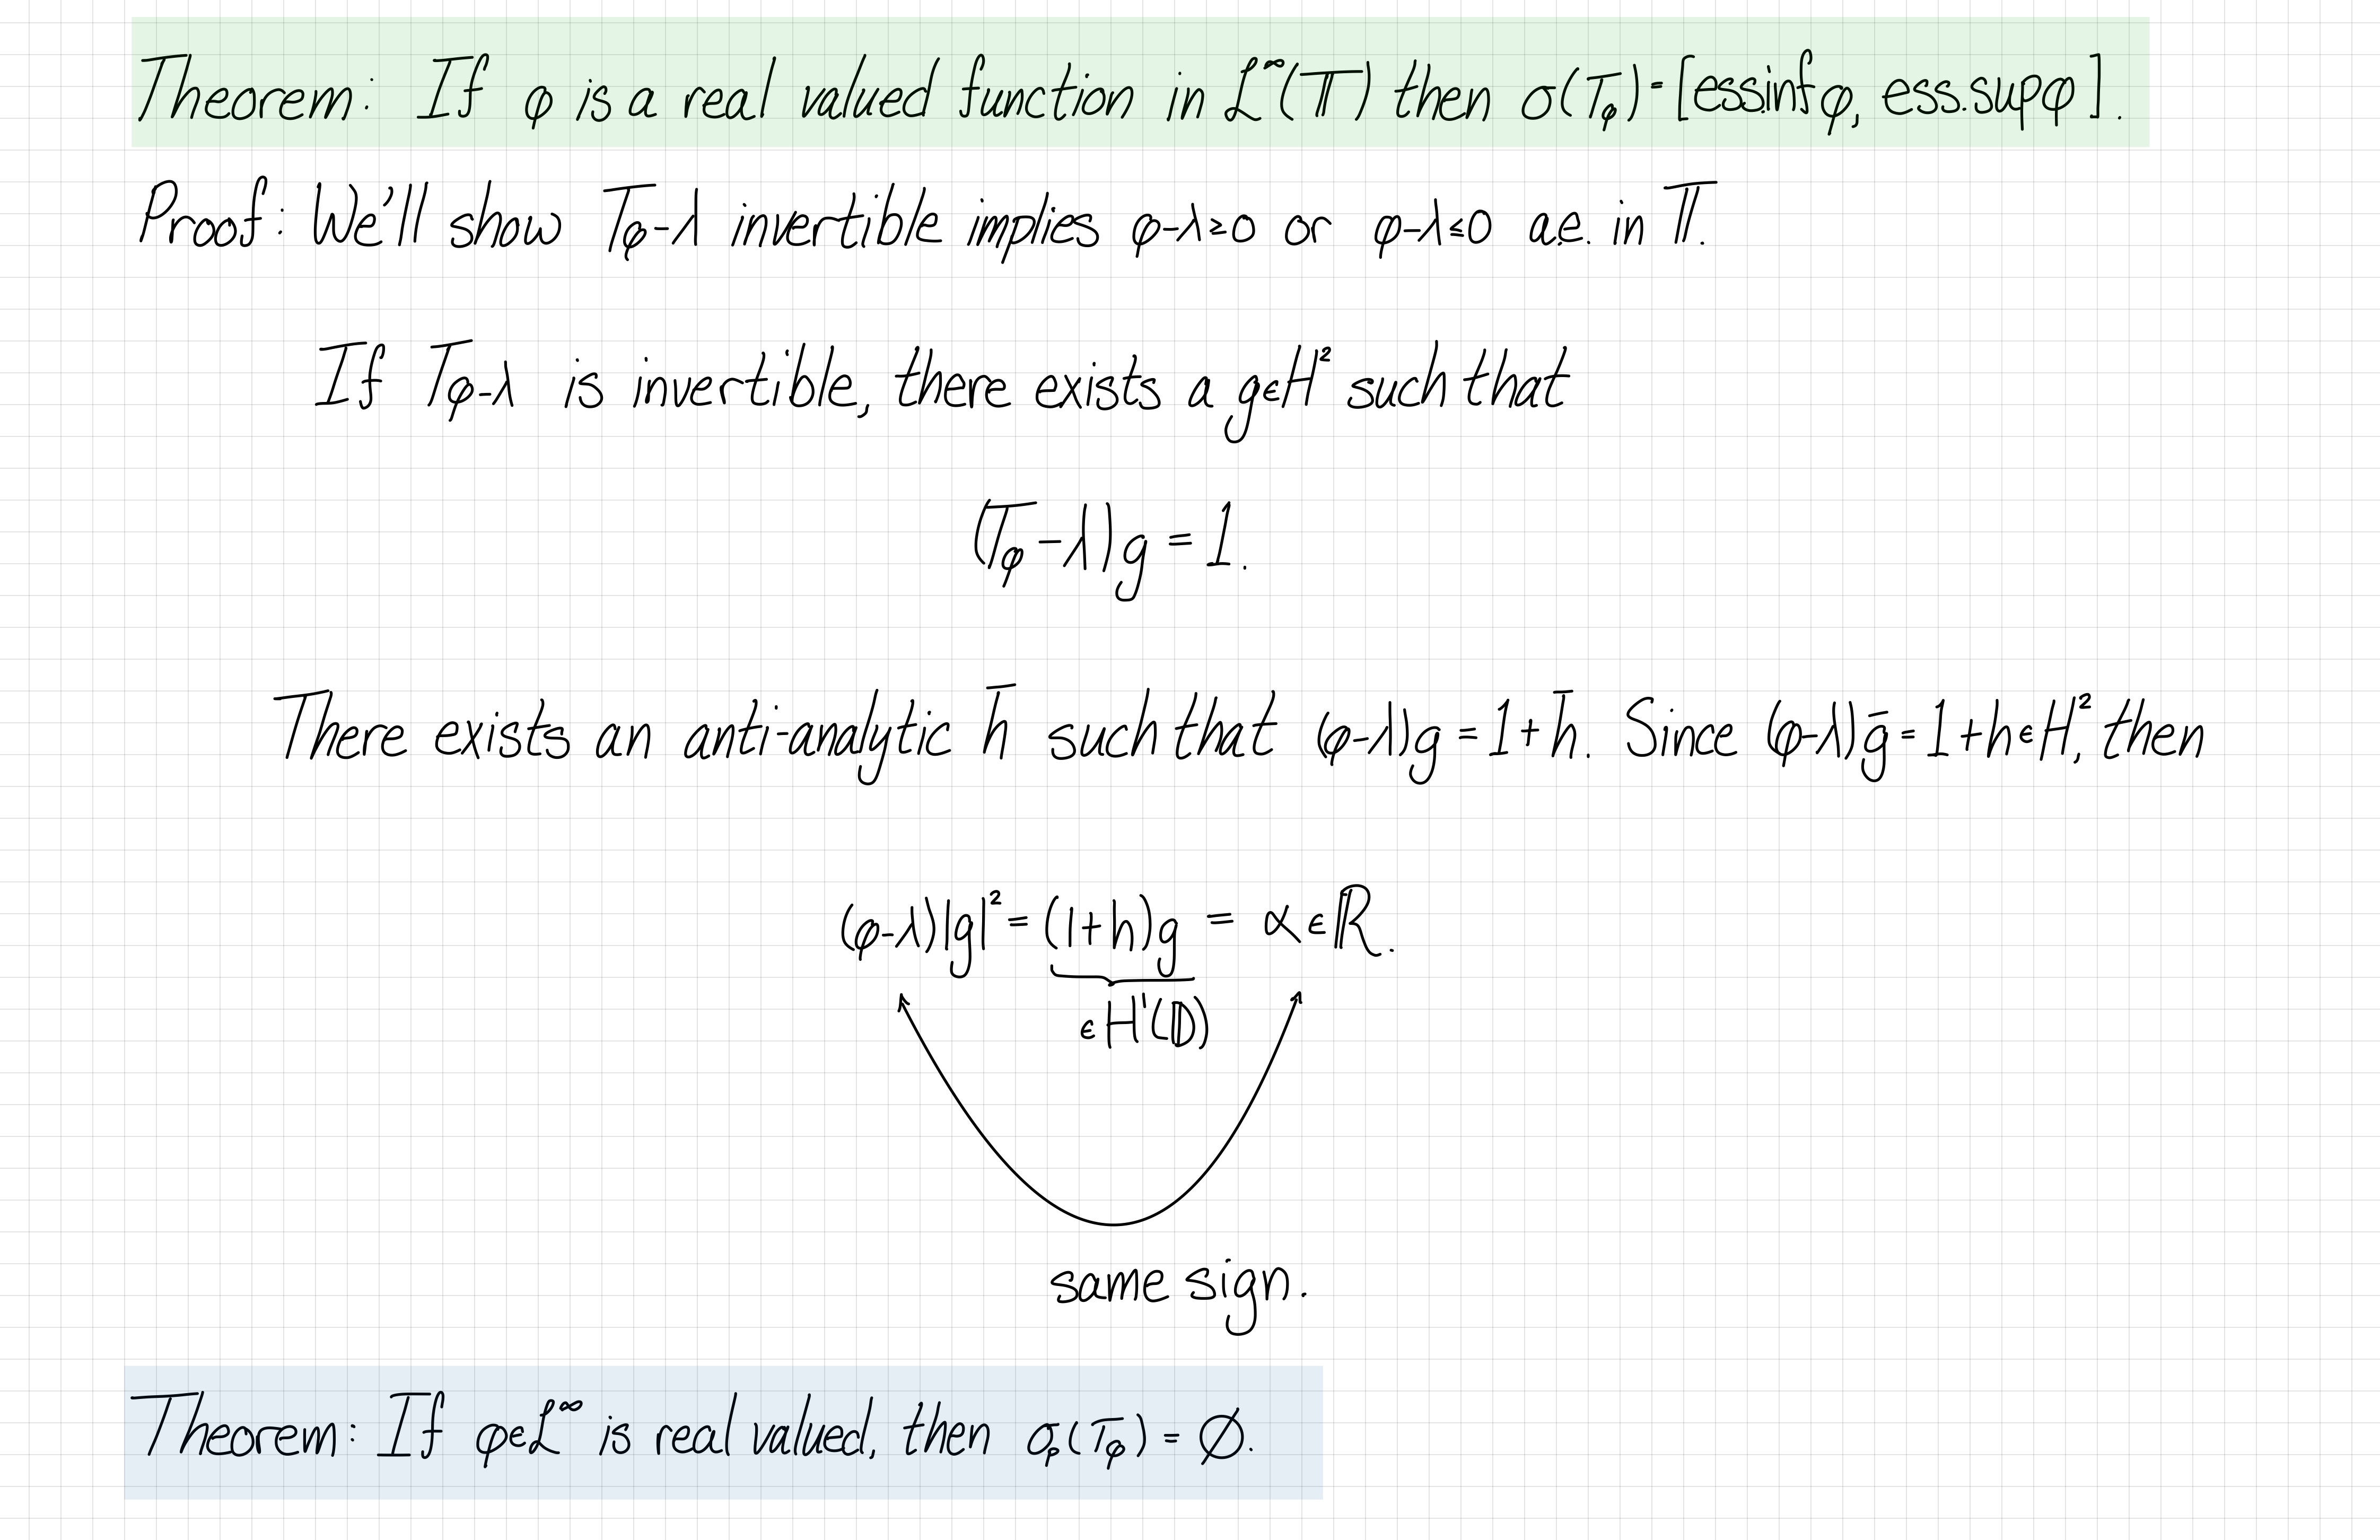 Theorem: If φ is a real valued function in L^∞(𝕋) then σ(T_φ)=[ess.inf φ, ess.sup φ].
Proof: We'll show T_φ-λ invertible implies φ-λ≥0 or φ-λ≤0 a.e. in 𝕋.
If T_φ-λ is invertible, there exists a g∈H² such that
(T_φ-λ)g = 1.
There exists an anti-analytic h̄ such that (φ-λ)g = 1+h̄. Since (φ-λ)ḡ = 1+h∈H², then
(φ-λ)|g|² = (1+h)g = α∈ℝ.
∈H¹(𝔻)
same sign.
Theorem: If φ∈L^∞ is real valued, then σ_p(T_φ) = ∅.